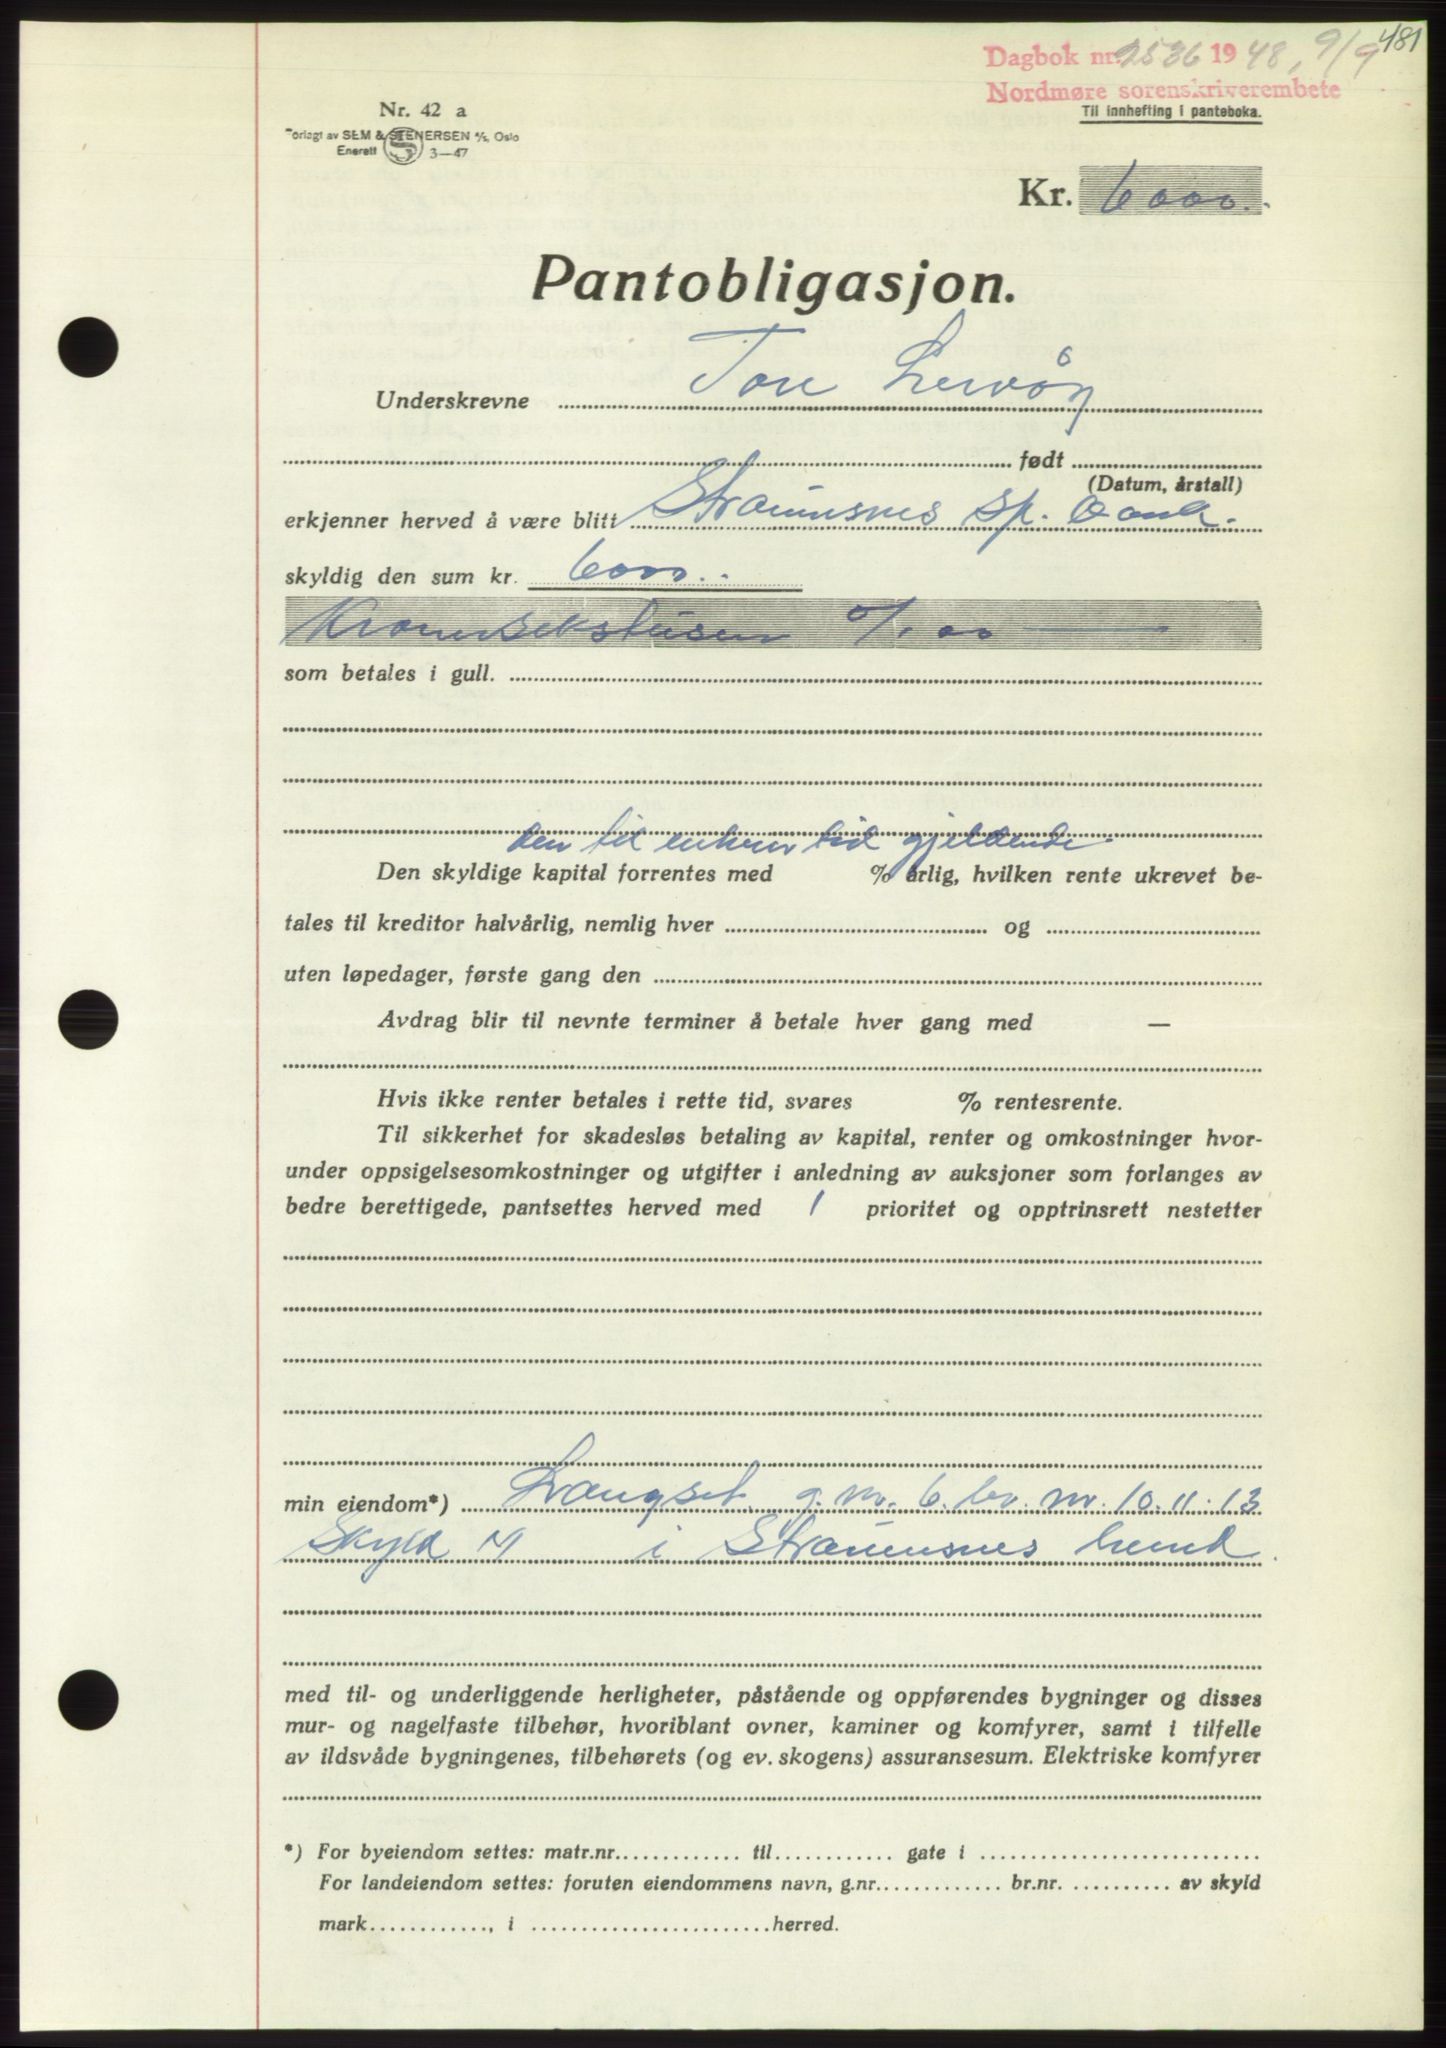 481
Dagbok nr. 2536 1948, 9/9
Nordmøre sorenskriverembete
Til innhefting i panteboka.
Nr. 42 a
Forlagt av SEM & STENERSEN A/S, Oslo
Enerett S 3-47
Kr. 6000.-
Pantobligasjon.
Underskrevne Tore Lervåg
født
(Datum, årstall)
erkjenner herved å være blitt Straumsnes Sp. bank.
skyldig den sum kr. 6000.-
Kroner sekstusen 0/00
som betales i gull.
den til enhver tid gjeldende
Den skyldige kapital forrentes med % årlig, hvilken rente ukrevet be-
tales til kreditor halvårlig, nemlig hver og
uten løpedager, første gang den
Avdrag blir til nevnte terminer å betale hver gang med —
Hvis ikke renter betales i rette tid, svares % rentesrente.
Til sikkerhet for skadesløs betaling av kapital, renter og omkostninger hvor-
under oppsigelsesomkostninger og utgifter i anledning av auksjoner som forlanges av
bedre berettigede, pantsettes herved med 1 prioritet og opptrinsrett nestetter
min eiendom*) Langset g.nr. 6. br. nr. 10. 11. 13
Skyld M i Straumsnes herred.
med til- og underliggende herligheter, påstående og oppførendes bygninger og disses
mur- og nagelfaste tilbehør, hvoriblant ovner, kaminer og komfyrer, samt i tilfelle
av ildsvåde bygningenes, tilbehørets (og ev. skogens) assuransesum. Elektriske komfyrer
*) For byeiendom settes: matr.nr. til gate i
For landeiendom settes: foruten eiendommens navn, g.nr. br.nr. av skyld
mark , i herred.